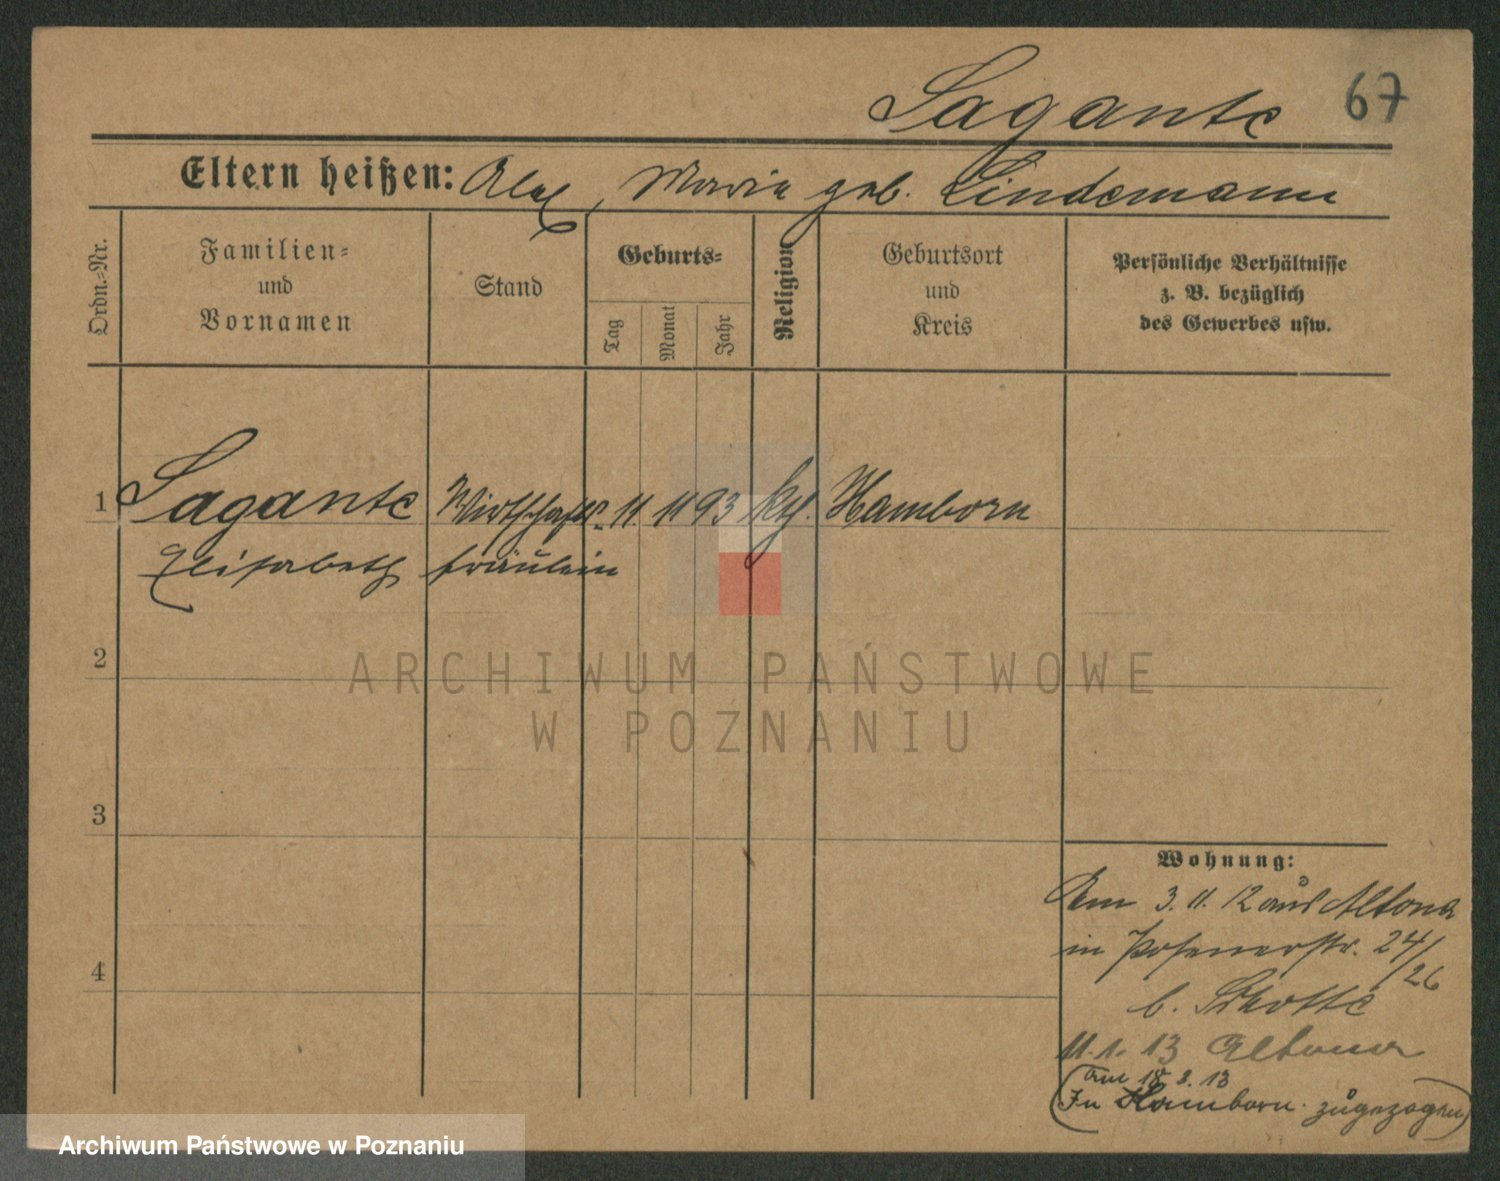 Sagante 67
Eltern heißen: Alex, Maria geb. Lindemann
Ordn.-Nr.
Familien-
und
Vornamen
Stand
Geburts-
Tag
Monat
Jahr
Religion
Geburtsort
und
Kreis
Persönliche Verhältnisse
z. B. bezüglich
des Gewerbes usw.
1 Sagante Wirthschafts- 11 11 93 kth. Hamborn
Elisabeth fräulein
2
ARCHIWUM PAŃSTWOWE
W POZNANIU
3
Wohnung:
Am 3.11.12 aus Altona
in Posenerstr. 24/26
4
b.
11.1.13 Altona
(am 18.3.13
In Hamborn zugezogen)
Archiwum Państwowe w Poznaniu